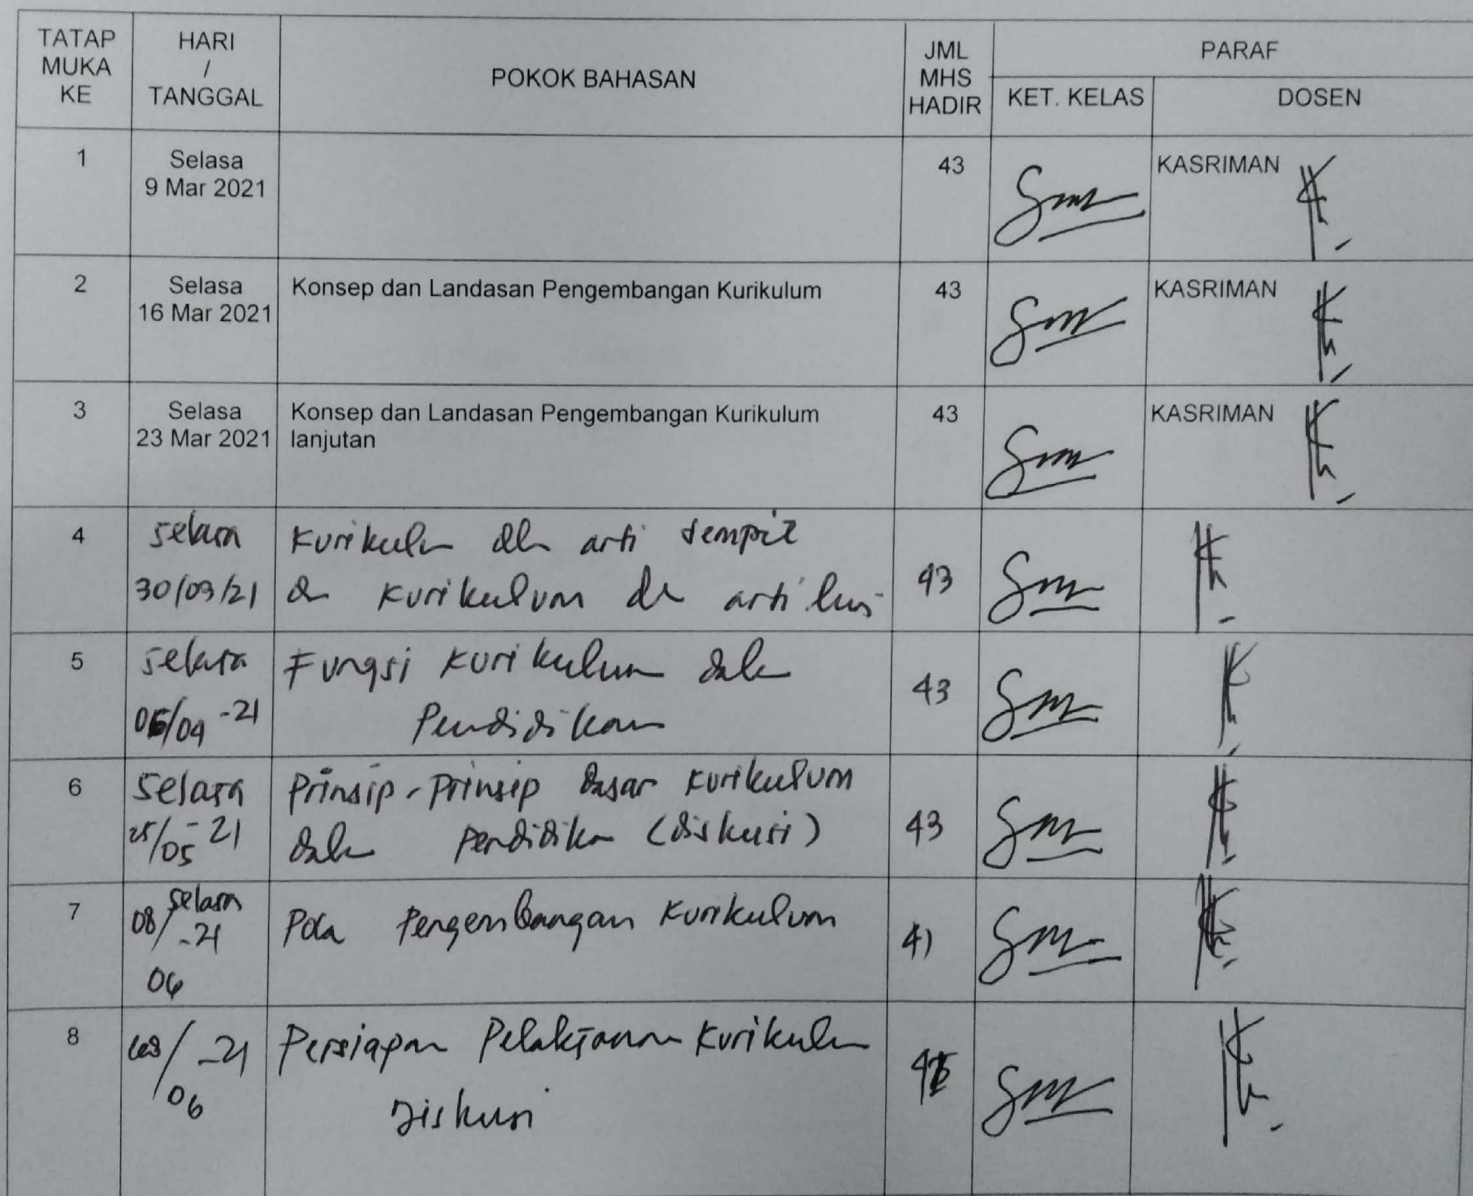 TATAP MUKA KE
HARI / TANGGAL
POKOK BAHASAN
JML MHS HADIR
PARAF
KET. KELAS
DOSEN
1
Selasa
9 Mar 2021
43
KASRIMAN
2
Selasa
16 Mar 2021
Konsep dan Landasan Pengembangan Kurikulum
43
KASRIMAN
3
Selasa
23 Mar 2021
Konsep dan Landasan Pengembangan Kurikulum
lanjutan
43
KASRIMAN
4
Selasa
30/03/21
Kurikulum dlm arti sempit
Kurikulum arti luas
43
5
Selasa
/04 -21
Fungsi Kurikulum dalam
Pendidikan
43
6
Selasa
25/05 -21
Prinsip-prinsip dasar Kurikulum
dalam pendidikan (diskusi)
43
7
Selasa
08/06 -21
Pola Pengembangan Kurikulum
41
8
/06 -21
Persiapan Pelaksanaan Kurikulum
Diskusi